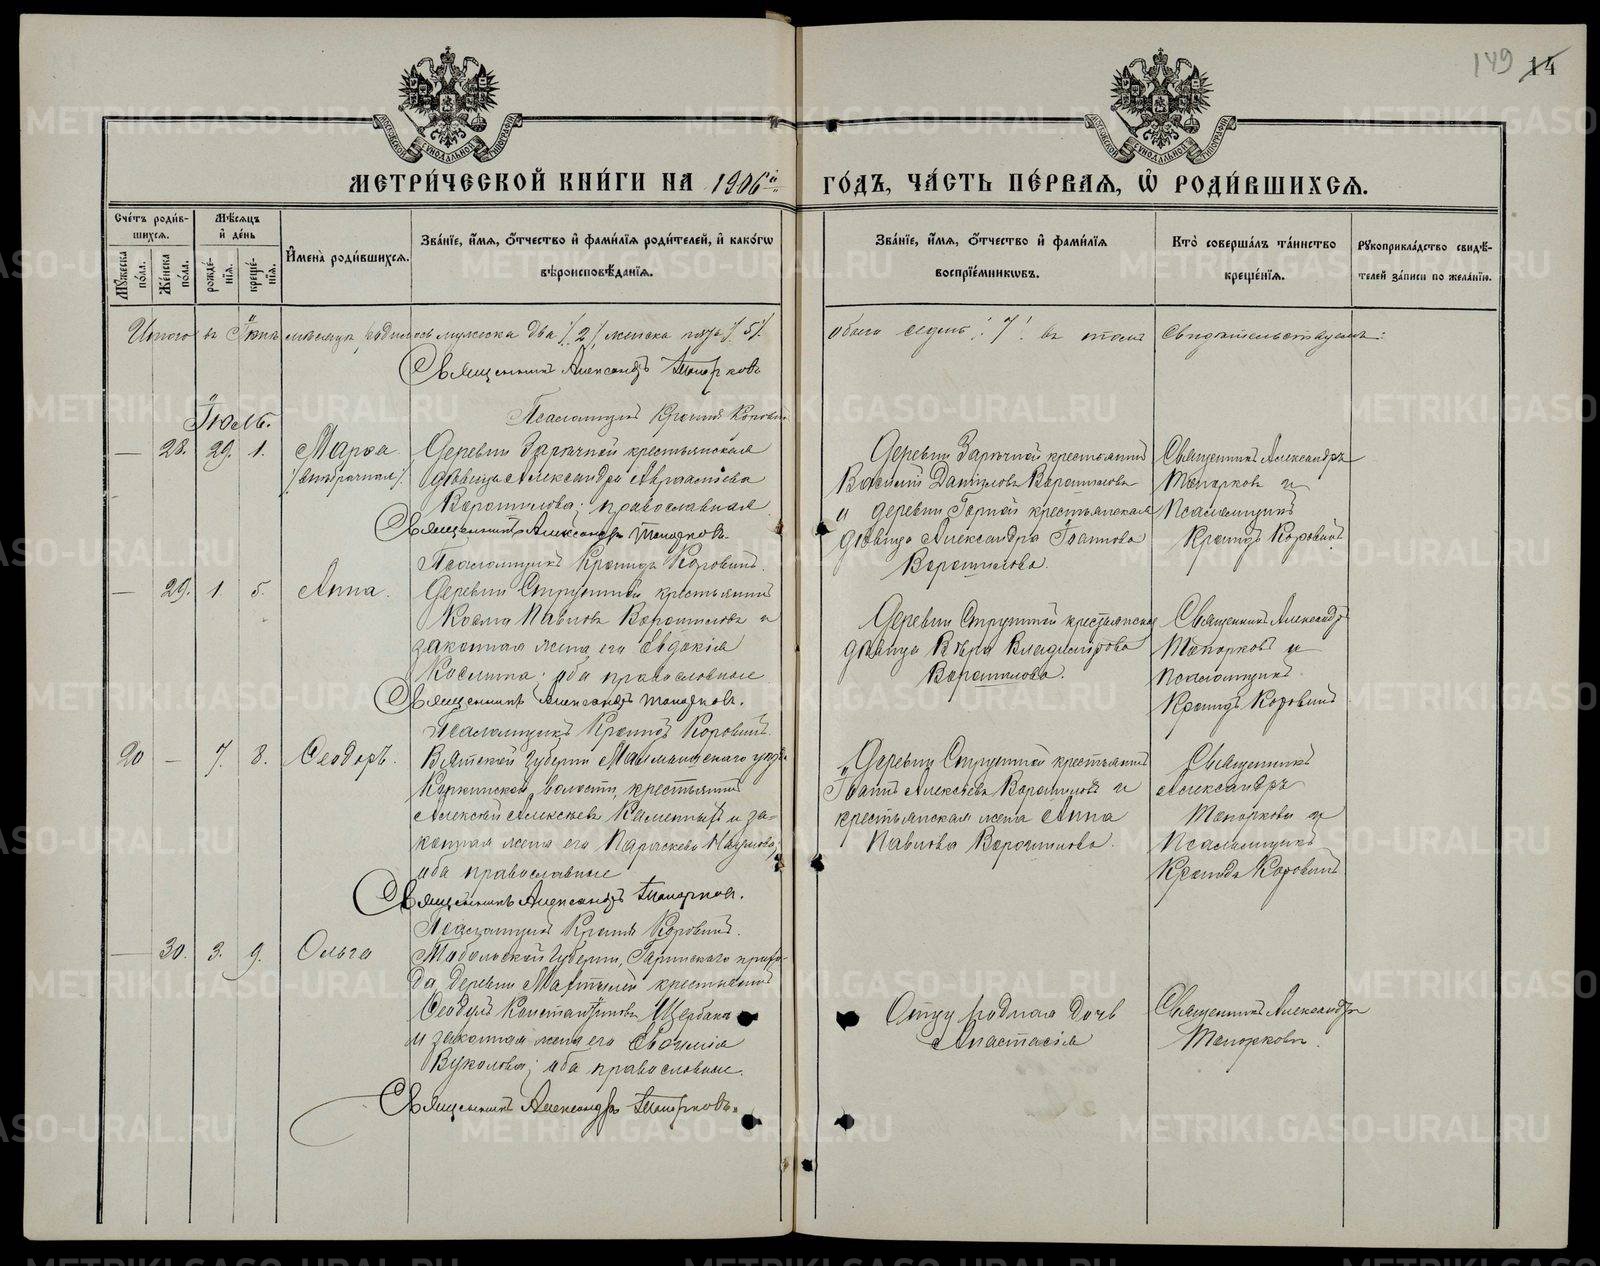 149 14
МОСКОВСКОЙ СѴНОДАЛЬНОЙ ТИПОГРАФІИ
МОСКОВСКОЙ СѴНОДАЛЬНОЙ ТИПОГРАФІИ
МЕТРИ́ЧЕСКОЙ КНИ́ГИ НА 1906й ГО́ДЪ, ЧА́СТЬ ПЕ́РВАЯ, Ѡ҆ РОДИ́ВШИХСЯ.
Сче́тъ роди́в-
шихся.
Мꙋ́жеска по́ла.
Же́нска по́ла.
Мѣ́сяцъ и҆ де́нь
рожде́-нїя.
креще́-нїя.
И҆мена̀ роди́вшихся.
Зва́нїе, и҆́мя, ѻ҆́тчество и҆ фами́лїя роди́телей, и҆ како́гѡ
вѣроисповѣ́данїя.
Зва́нїе, и҆́мя, ѻ҆́тчество и҆ фами́лїя
воспрїе́мникѡвъ.
Кто̀ соверша́лъ та́инство
креще́нїя.
Рꙋкоприкла́дство свидѣ́-
телей за́писи по жела́нїю.
Итого въ Іюнѣ мѣсяцѣ родилось мужеска два /2/, женска пять /5/
обоего седмь /7/ въ томъ свидѣтельствуемъ:
Священникъ Александръ Топорковъ
Псаломщикъ Кронидъ Коровинъ
Іюль.
— 28. 29. 1. Марѳа
/внебрачная/
Деревни Зарѣчной крестьянская
дѣвица Александра
Ворошилова; православная
Священникъ Александръ Топорковъ.
Псаломщикъ Кронидъ Коровинъ.
Деревни Зарѣчной крестьянинъ
Василій Даніиловъ Ворошиловъ
и деревни Горной крестьянская
дѣвица Александра Іоаннова
Ворошилова.
Священникъ Александръ
Топорковъ и
Псаломщикъ
Кронидъ Коровинъ
— 29. 1. 5. Анна.
Деревни крестьянинъ
Косма Павловъ Ворошиловъ и
законная жена его Евдокія
Космина; оба православные
Священникъ Александръ Топорковъ.
Псаломщикъ Кронидъ Коровинъ.
Деревни крестьянская
дѣвица Вѣра Владимірова
Ворошилова.
Священникъ Александръ
Топорковъ и
Псаломщикъ
Кронидъ Коровинъ
20 — 7. 8. Ѳеодоръ.
Вятской губерніи Малмыжскаго уѣзда
волости, крестьянинъ
Алексій Алексѣевъ и за-
конная жена его Параскева Наумова;
оба православные
Священникъ Александръ Топорковъ.
Псаломщикъ Кронидъ Коровинъ.
Деревни крестьянинъ
Іоаннъ Алексѣевъ Ворошиловъ и
крестьянская жена Анна
Павлова Ворошилова.
Священникъ
Александръ
Топорковъ и
Псаломщикъ
Кронидъ Коровинъ
— 30. 3. 9. Ольга
Тобольской губерніи, Гаринскаго прихо-
да, деревни крестьянинъ
Ѳеодулъ Константиновъ Щербаковъ
и законная жена его Евѳимія
Вуколова; оба православные.
Священникъ Александръ Топорковъ.
Отцу родная дочь
Анастасія
Священникъ Александръ
Топорковъ.